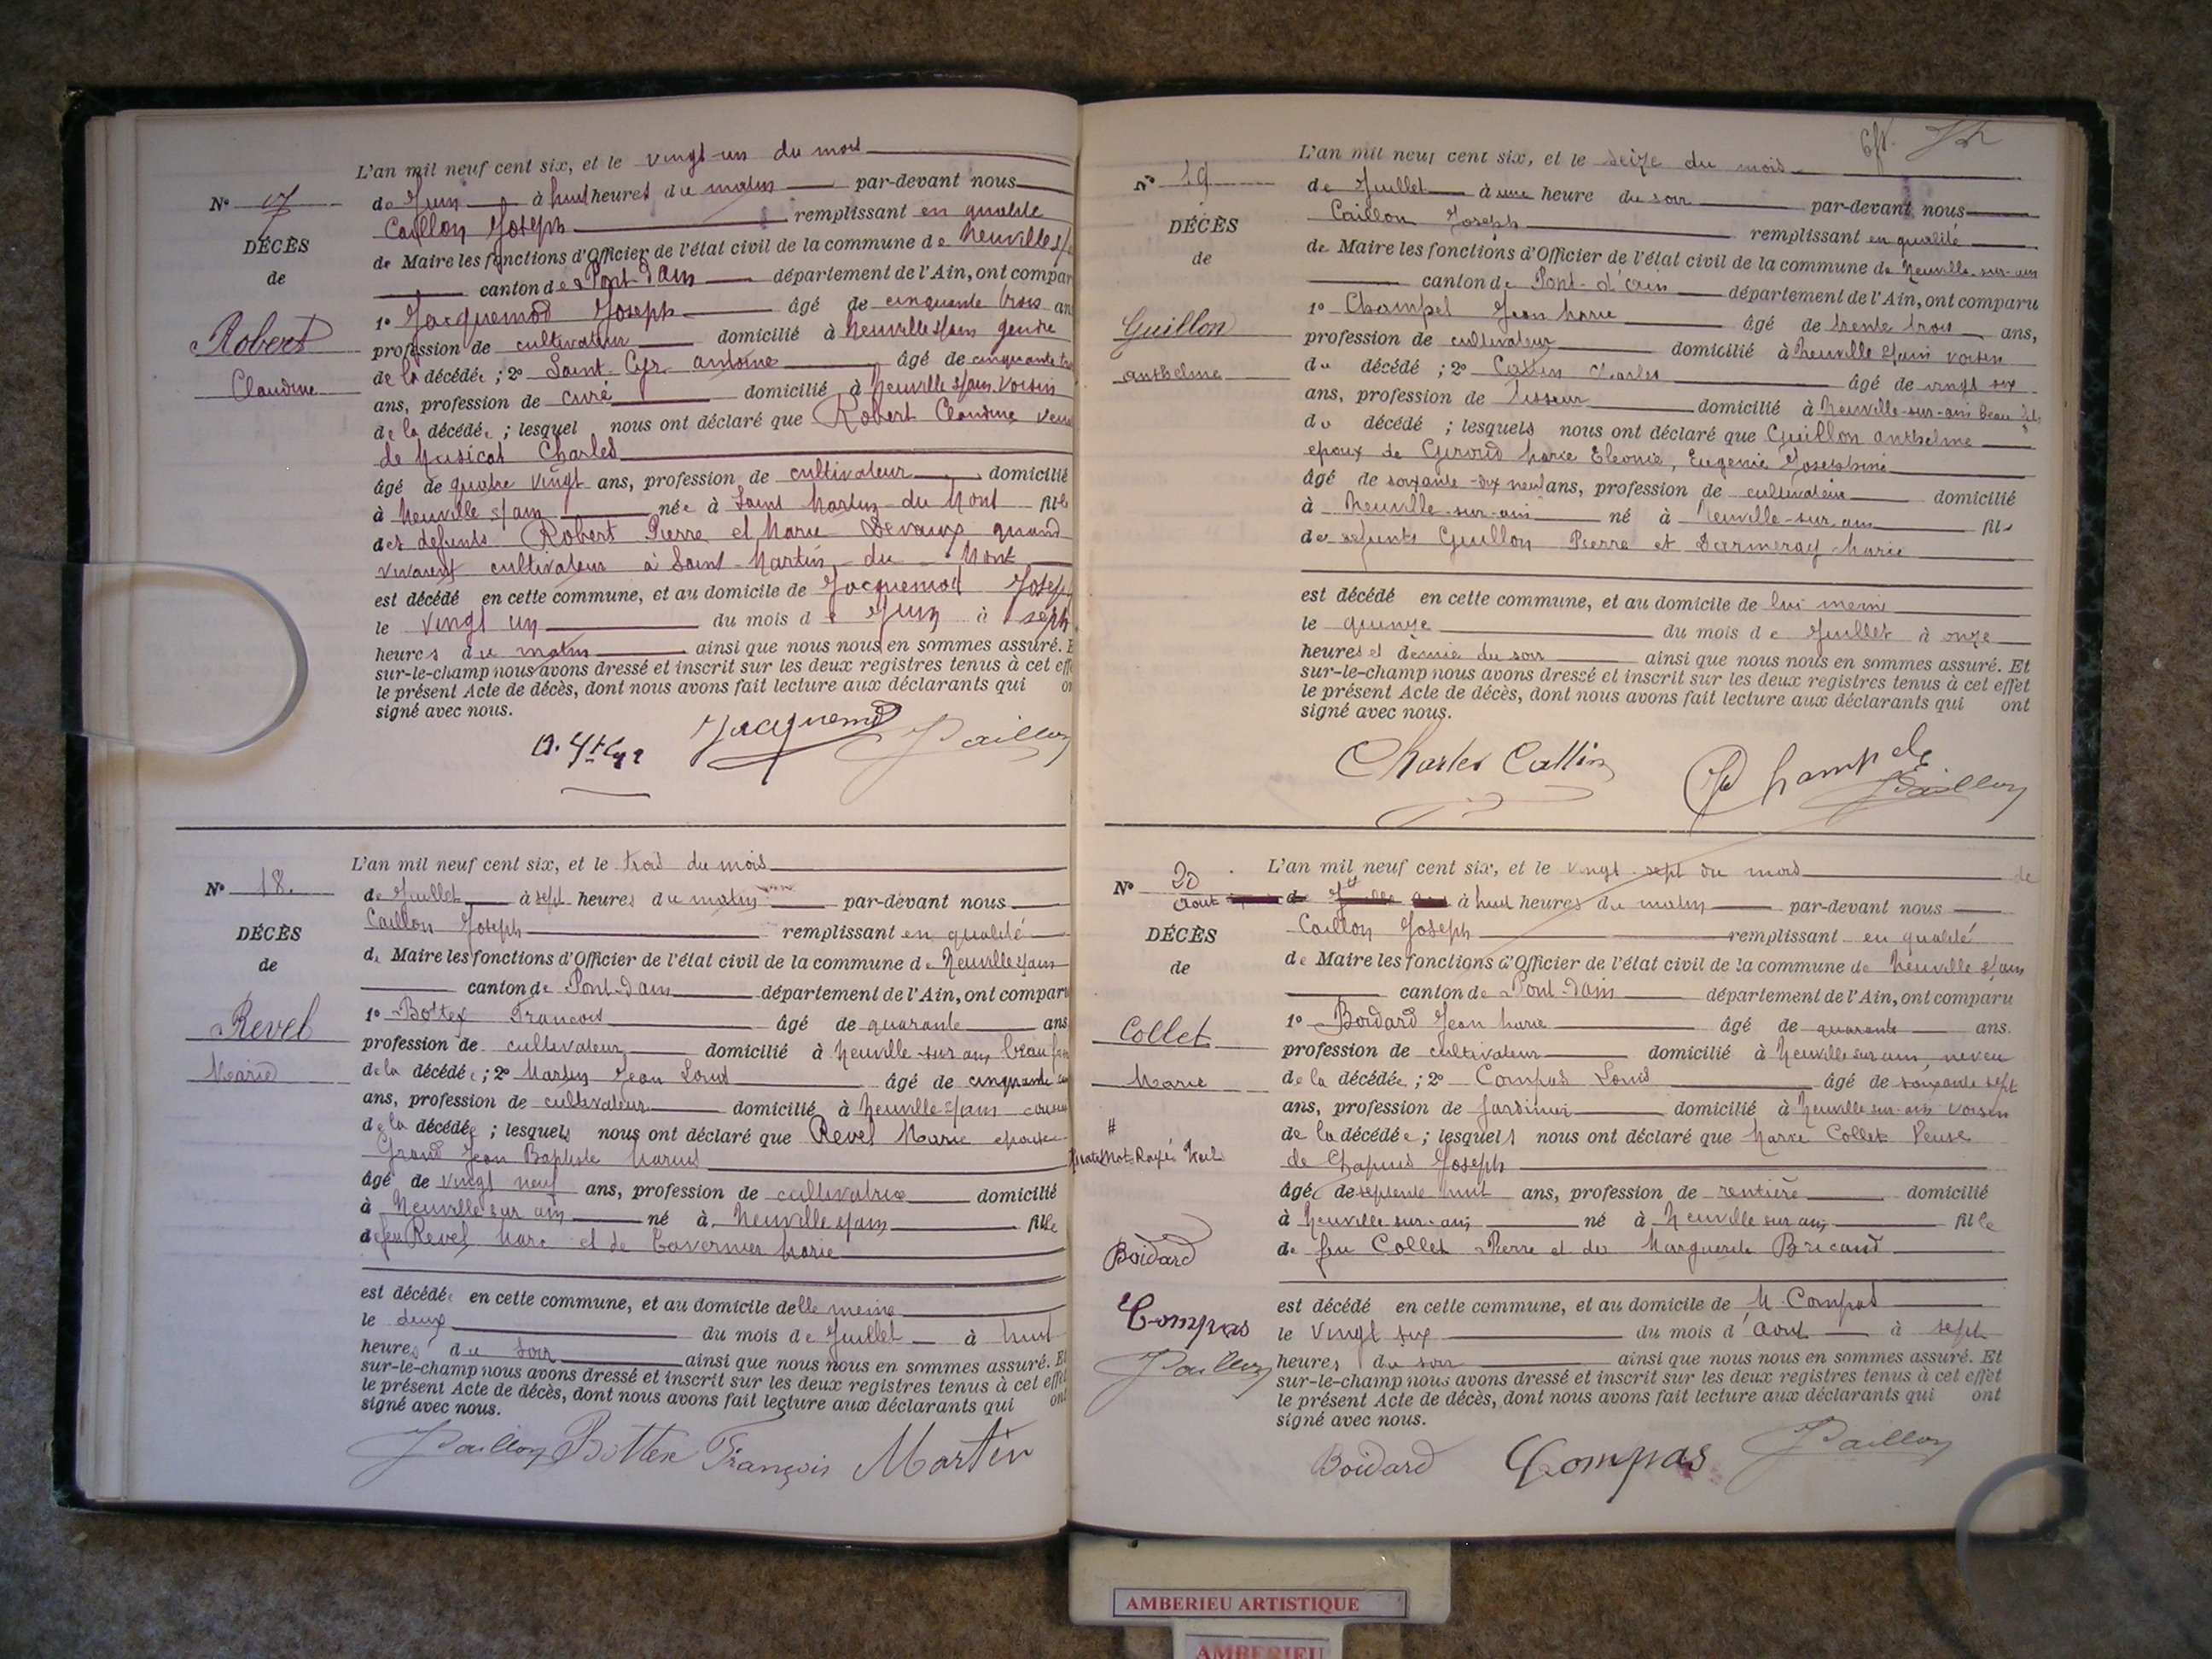 L'an mil neuf cent six, et le vingt-un du mois
N° 17
de Juin à huit heures du matin par-devant nous
Caillon Joseph remplissant en qualité
DÉCÈS
de Maire les fonctions d'Officier de l'état civil de la commune de Neuville s/
de
canton de Pont d'Ain département de l'Ain, ont compar
1° Jacquemod Joseph âgé de cinquante trois an
Robert
profession de cultivateur domicilié à Neuville s/ain gendre
de la décédée ; 2° Saint-Cyr antoine âgé de cinquante
Claudine
ans, profession de curé domicilié à Neuville s/ain voisin
de la décédée ; lesquel nous ont déclaré que Robert Claudine veuve
de Charles
âgé de quatre vingt ans, profession de cultivateur domicilié
à Neuville s/ain née à Saint Martin-du Mont fille
des defunts Robert Pierre et Marie Devaux quand
vivaient cultivateur à Saint-Martin-du-Mont
est décédé en cette commune, et au domicile de Jacquemod Joseph
le vingt un du mois de Juin à sept
heures du matin ainsi que nous nous en sommes assuré. E
sur-le-champ nous avons dressé et inscrit sur les deux registres tenus à cet effe
le présent Acte de décès, dont nous avons fait lecture aux déclarants qui on
signé avec nous.
Jacquemod Caillon
L'an mil neuf cent six, et le trois du mois
N° 18.
de Juillet à sept heures du matin par-devant nous
Caillon Joseph remplissant en qualité
DÉCÈS
de Maire les fonctions d'Officier de l'état civil de la commune de Neuville s/ain
de
canton de Pont-d'ain département de l'Ain, ont comparu
1° Bottex Francois âgé de quarante ans
Revel
profession de cultivateur domicilié à Neuville-sur ain beau
Marie
de la décédée ; 2° Martin Jean Louis âgé de cinquante
ans, profession de cultivateur domicilié à Neuville s/ain cousin
de la décédée ; lesquels nous ont déclaré que Revel Marie epouse
Grand Jean Baptiste Marius
âgé de vingt neuf ans, profession de cultivatrice domicilié
à Neuville sur ain né à Neuville s/ain fille
de feu Revel Marc et de Tavernier Marie
est décédée en cette commune, et au domicile delle meme
le deux du mois de Juillet à huit
heures du soir ainsi que nous nous en sommes assuré. Et
sur-le-champ nous avons dressé et inscrit sur les deux registres tenus à cet effet
le présent Acte de décès, dont nous avons fait lecture aux déclarants qui ont
signé avec nous.
Caillon Bottex François Martin
L'an mil neuf cent six, et le seize du mois
N° 19
de Juillet à une heure du soir par-devant nous
Caillon Joseph remplissant en qualité
DÉCÈS
de Maire les fonctions d'Officier de l'état civil de la commune de Neuville-sur-ain
de
canton de Pont-d'ain département de l'Ain, ont comparu
1° Champel Jean Marie âgé de trente trois ans,
Guillon
profession de cultivateur domicilié à Neuville s/ain voisin
anthelme
du décédé ; 2° Collin Charles âgé de vingt six
ans, profession de Tisseur domicilié à Neuville-sur-ain beau fils
du décédé ; lesquels nous ont déclaré que Guillon anthelme
epoux de Giroud Marie Eleonie, Eugenie Josephine
âgé de soixante-dix neuf ans, profession de cultivateur domicilié
à Neuville-sur-ain né à Neuville-sur ain fils
de defunts Guillon Pierre et Darmeray Marie
est décédé en cette commune, et au domicile de lui meme
le quinze du mois de Juillet à onze
heures et demie du soir ainsi que nous nous en sommes assuré. Et
sur-le-champ nous avons dressé et inscrit sur les deux registres tenus à cet effet
le présent Acte de décès, dont nous avons fait lecture aux déclarants qui ont
signé avec nous.
Charles Collin Caillon
L'an mil neuf cent six, et le vingt sept du mois de
N° 20
Aout à huit heures du matin par-devant nous
Caillon Joseph remplissant en qualité
DÉCÈS
de Maire les fonctions d'Officier de l'état civil de la commune de Neuville s/ain
de
canton de Pont-d'ain département de l'Ain, ont comparu
1° Boidard Jean Marie âgé de quarante ans.
Collet
profession de cultivateur domicilié à Neuville sur ain neveu
Marie
de la décédée ; 2° Compas Louis âgé de soixante sept
ans, profession de Jardinier domicilié à Neuville-sur-ain voisin
de la décédée ; lesquels nous ont déclaré que Marie Collet Veuve
de Chapuis Joseph
âgé de septente huit ans, profession de rentière domicilié
à Neuville sur-ain né à Neuville sur ain fille
de feu Collet Pierre et de Marguerite Bricaud
Boidard
est décédé en cette commune, et au domicile de M. Compas
Compas
le vingt six du mois d'aout à sept
Caillon
heures du soir ainsi que nous nous en sommes assuré. Et
sur-le-champ nous avons dressé et inscrit sur les deux registres tenus à cet effet
le présent Acte de décès, dont nous avons fait lecture aux déclarants qui ont
signé avec nous.
Boidard Compas Caillon
AMBERIEU ARTISTIQUE
AMBERIEU